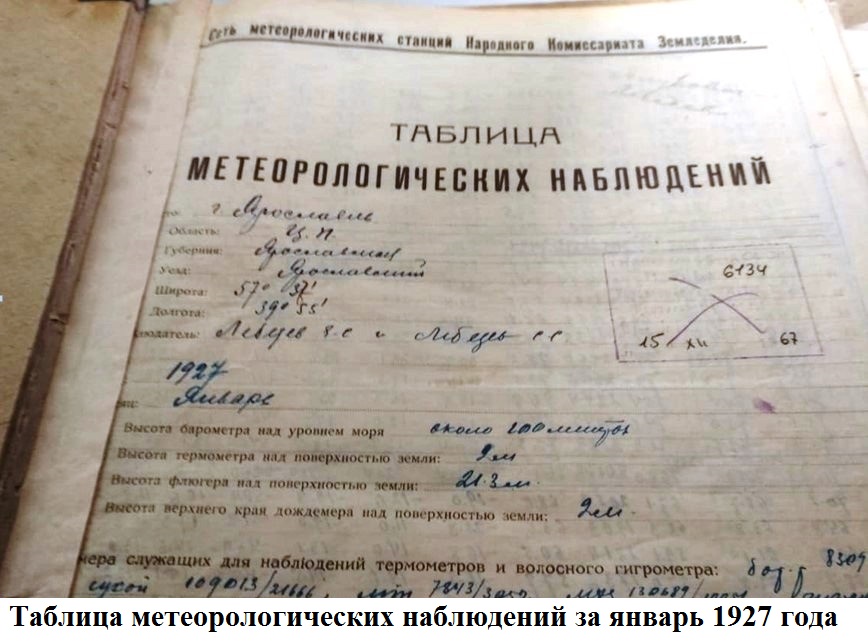 Сеть метеорологических станций Народного Комиссариата Земледелия.
ТАБЛИЦА
МЕТЕОРОЛОГИЧЕСКИХ НАБЛЮДЕНИЙ
г. Ярославль
Область: Ц.П.
Губерния: Ярославская
Уезд: Ярославский
Широта: 57° 37'
Долгота: 39° 55'
6134
15 XII 67
1927
Январь
Высота барометра над уровнем моря около 100 метров
Высота термометра над поверхностью земли: 2м
Высота флюгера над поверхностью земли: 21.3м.
Высота верхнего края дождемера над поверхностью земли: 2м.
мера служащих для наблюдений термометров и волосного гигрометра: 8309
сухой 109013/21666,
Таблица метеорологических наблюдений за январь 1927 года